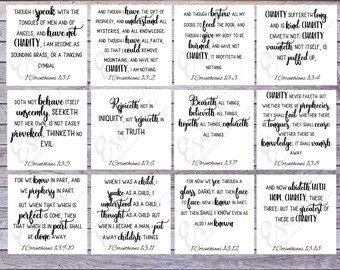 THOUGH I speak WITH THE
TONGUES OF MEN AND OF
ANGELS, AND have not
CHARITY, I AM BECOME AS
SOUNDING BRASS, OR A TINKLING
CYMBAL
1 Corinthians 13:1
AND THOUGH I have THE GIFT OF
PROPHECY, AND understand ALL
MYSTERIES, AND ALL KNOWLEDGE;
AND THOUGH I have ALL FAITH,
SO THAT I could REMOVE
MOUNTAINS, AND HAVE NOT
CHARITY, I AM NOTHING.
1 Corinthians 13:2
AND THOUGH I bestow ALL MY
GOODS TO feed THE POOR, AND
THOUGH I give MY BODY TO BE
burned, AND have not
CHARITY, IT PROFITETH ME
NOTHING
1 Corinthians 13:3
CHARITY SUFFERETH long,
AND IS kind; CHARITY
ENVIETH NOT; CHARITY
vaunteth NOT ITSELF, IS
NOT puffed UP,
1 Corinthians 13:4
DOTH NOT behave ITSELF
unseemly, SEEKETH
NOT HER OWN, IS NOT EASILY
provoked, THINKETH NO
EVIL
1 Corinthians 13:5
Rejoiceth NOT
IN INIQUITY, BUT rejoiceth
IN THE
TRUTH
1 Corinthians 13:6
Beareth ALL THINGS,
believeth ALL THINGS,
hopeth ALL THINGS, endureth
ALL THINGS.
1 Corinthians 13:7
CHARITY NEVER FAILETH: BUT
WHETHER THERE BE prophecies,
THEY SHALL fail; WHETHER THERE
BE tongues, THEY SHALL cease;
WHETHER THERE BE
knowledge, IT SHALL VANISH
AWAY.
1 Corinthians 13:8
FOR WE know IN PART, AND
WE prophecy IN PART.
BUT WHEN THAT WHICH IS
perfect IS COME, THEN
THAT WHICH IS IN PART SHALL
BE done AWAY.
1 Corinthians 13:9-10
WHEN I WAS A child, I
spake AS A CHILD, I
understood AS A CHILD, I
thought AS A CHILD: BUT
WHEN I BECAME A MAN, I PUT
AWAY childish THINGS.
1 Corinthians 13:11
FOR NOW WE see THROUGH A
glass, DARKLY; BUT THEN face
TO face: NOW I know IN PART;
BUT THEN SHALL I KNOW EVEN AS
ALSO I AM known
1 Corinthians 13:12
AND NOW abideth FAITH,
HOPE, CHARITY, THESE
THREE; BUT THE greatest OF
THESE IS CHARITY.
1 Corinthians 13:13